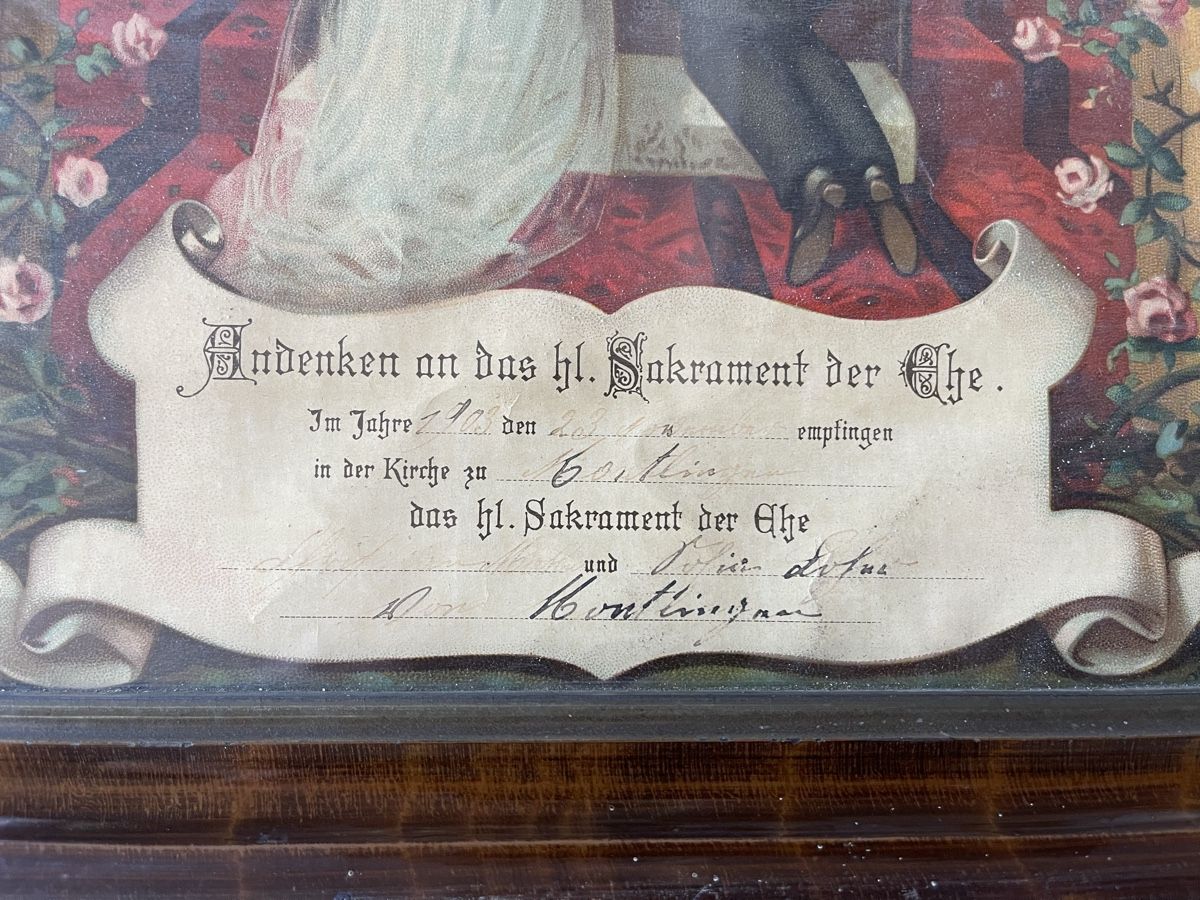 Andenken an das hl. Sakrament der Ehe.
Im Jahre 1903 den 23 November empfingen
in der Kirche zu Montlingen
das hl. Sakrament der Ehe
und
Von Montlingen